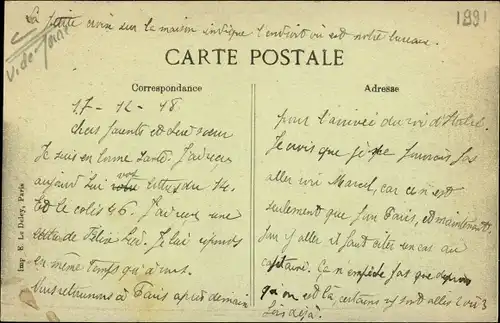 La petite croix sur la maison indique l'endroit où est notre bureau.
1991
CARTE POSTALE
Correspondance
Adresse
17 - 12 - 18
chers parents et chère sœur
Je suis en bonne santé. J'ai reçu
aujourd'hui vos lettres du 14
et le colis 46. J'ai reçu une
lettre de
en même temps qu'à vous.
Nous retournons à Paris après demain
pour l'arrivée du roi d'Italie.
Je crois que je ne pourrai pas
aller voir Marcel, car ce n'est
seulement que pour Paris, et maintenant
pour y aller il faut
capitaine. Ça n'empêche pas que depuis
qu'on est là, certains y sont allés 2 ou 3
fois déjà.
Imp. E. Le Deley, Paris